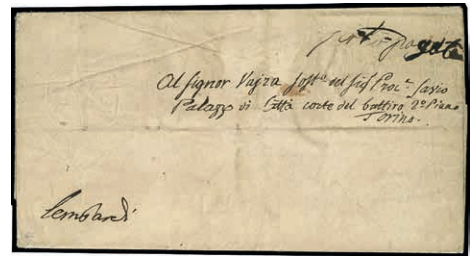 porto-pagato
Al Signor Vajra Sost.to del Sig.r Proc.e Savio
Palazzo di Città corte del battiro 2.o Piano
Torino.
Lombardi